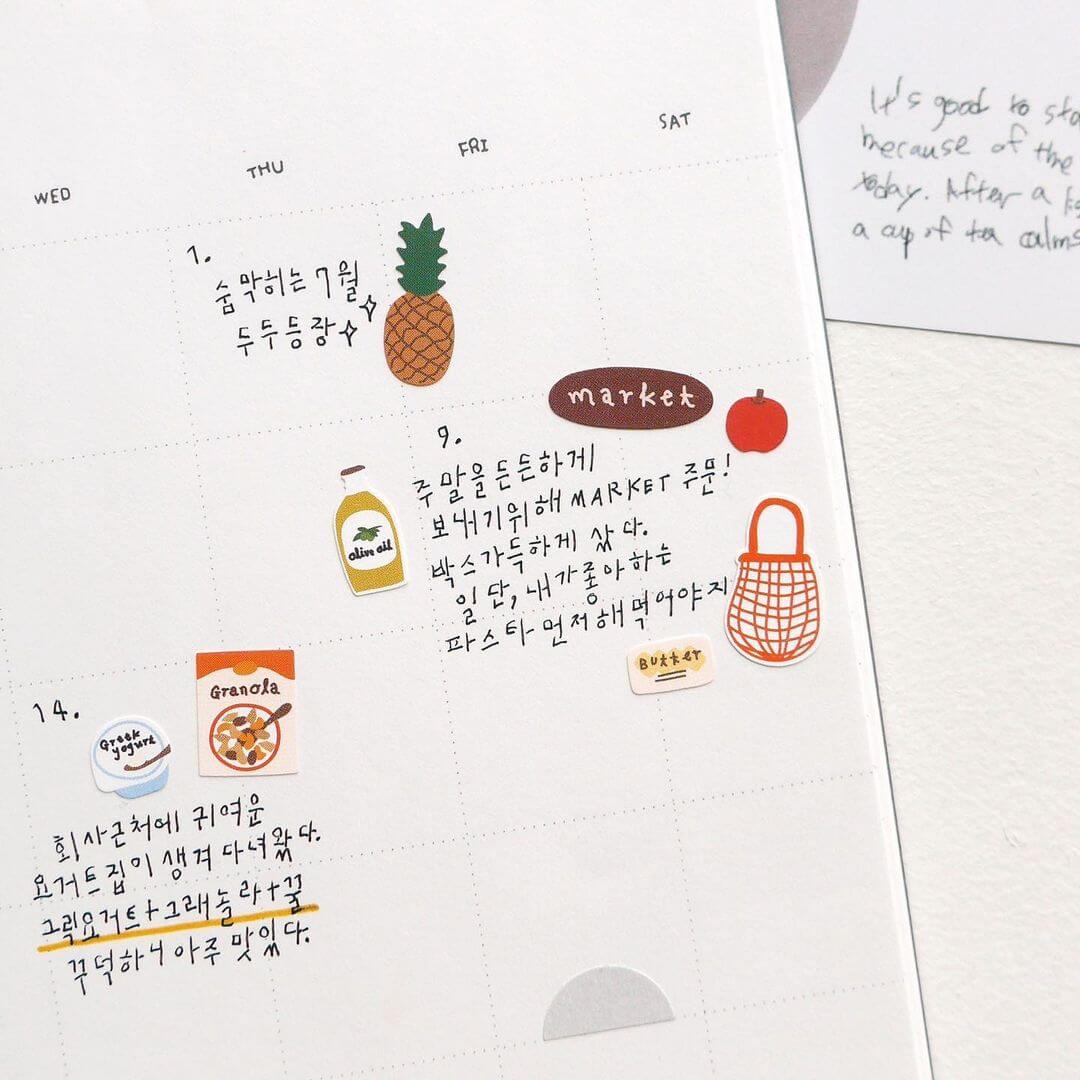 WED THU FRI SAT
1.
숨막히는 7월
두두등장
market
9.
주말을든든하게
보내기위해 MARKET 주문!
박스가득하게 샀다.
일단, 내가좋아하는
파스타먼저해먹어야지
olive oil
Butter
14.
Greek
yogurt
Granola
회사근처에 귀여운
요거트집이 생겨 다녀왔다.
그릭요거트+그래놀라+꿀
꾸덕하니 아주 맛있다.
It's good to
because of the
today. After a
a cup of tea calms